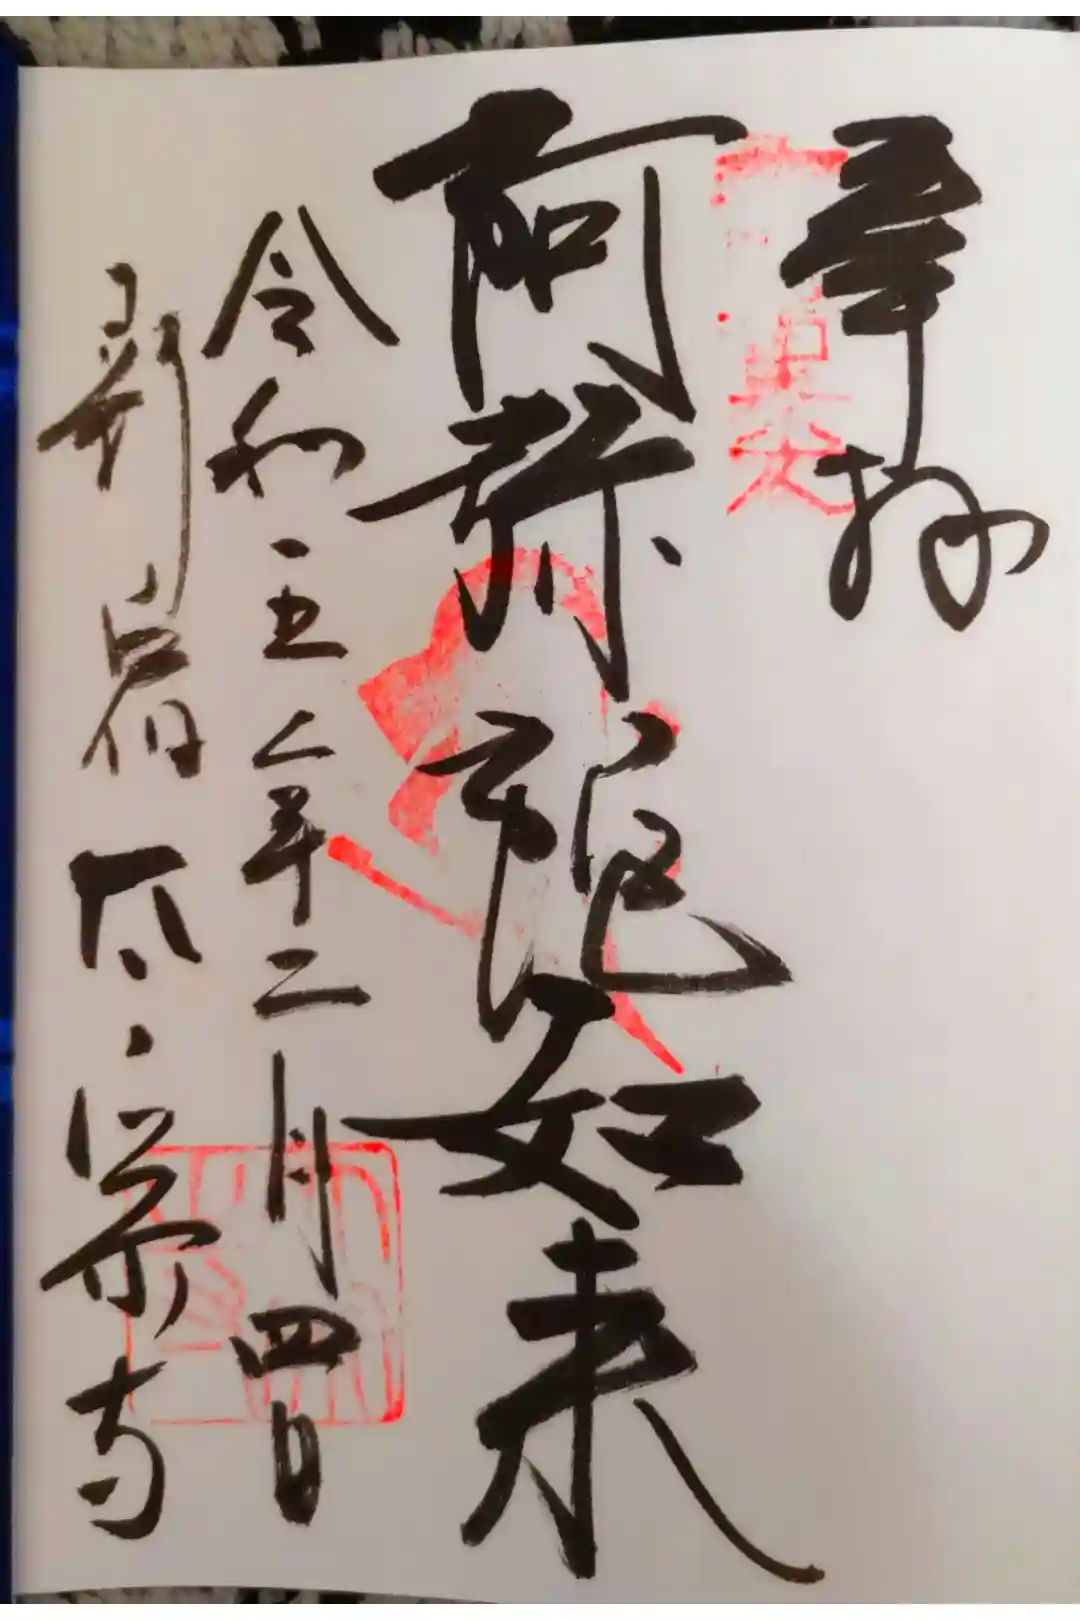 奉拝
阿弥陀如来
令和五年二月四日
新宿 太宗寺